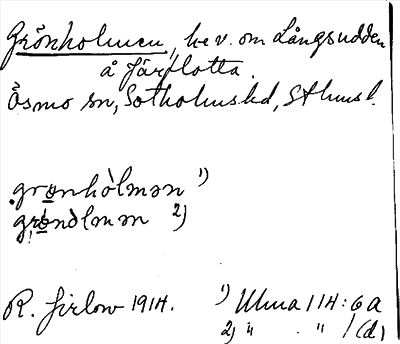 Grönholmen, ho v. om Långsudden
å Järflotta.
Ösmo sn, Sotholms hd, Sthms l.
.grønhòlmən 1)
grønòlmən 2)
R. Jirlow 1914. 1) Ulma 114:6 a
2) " . " / (d)